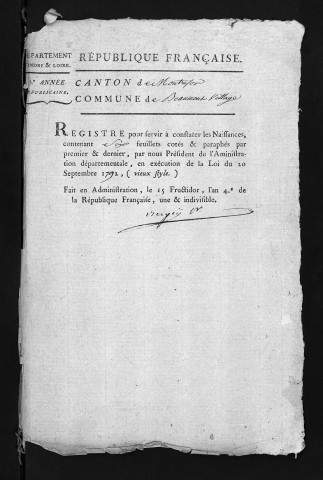 DÉPARTEMENT
d'INDRE & LOIRE.
RÉPUBLIQUE FRANÇAISE.
5e ANNÉE
RÉPUBLICAINE.
CANTON de Montresor
COMMUNE de Beaumont Village
REGISTRE pour servir à constater les Naissances,
contenant feuillets cotés & paraphés par
premier & dernier, par nous Président de l'Aministra-
tion départementale, en exécution de la Loi du 20
Septembre 1792, ( vieux style. )
Fait en Administration, le 15 Fructidor, l'an 4.e de
la République Française, une & indivisible.